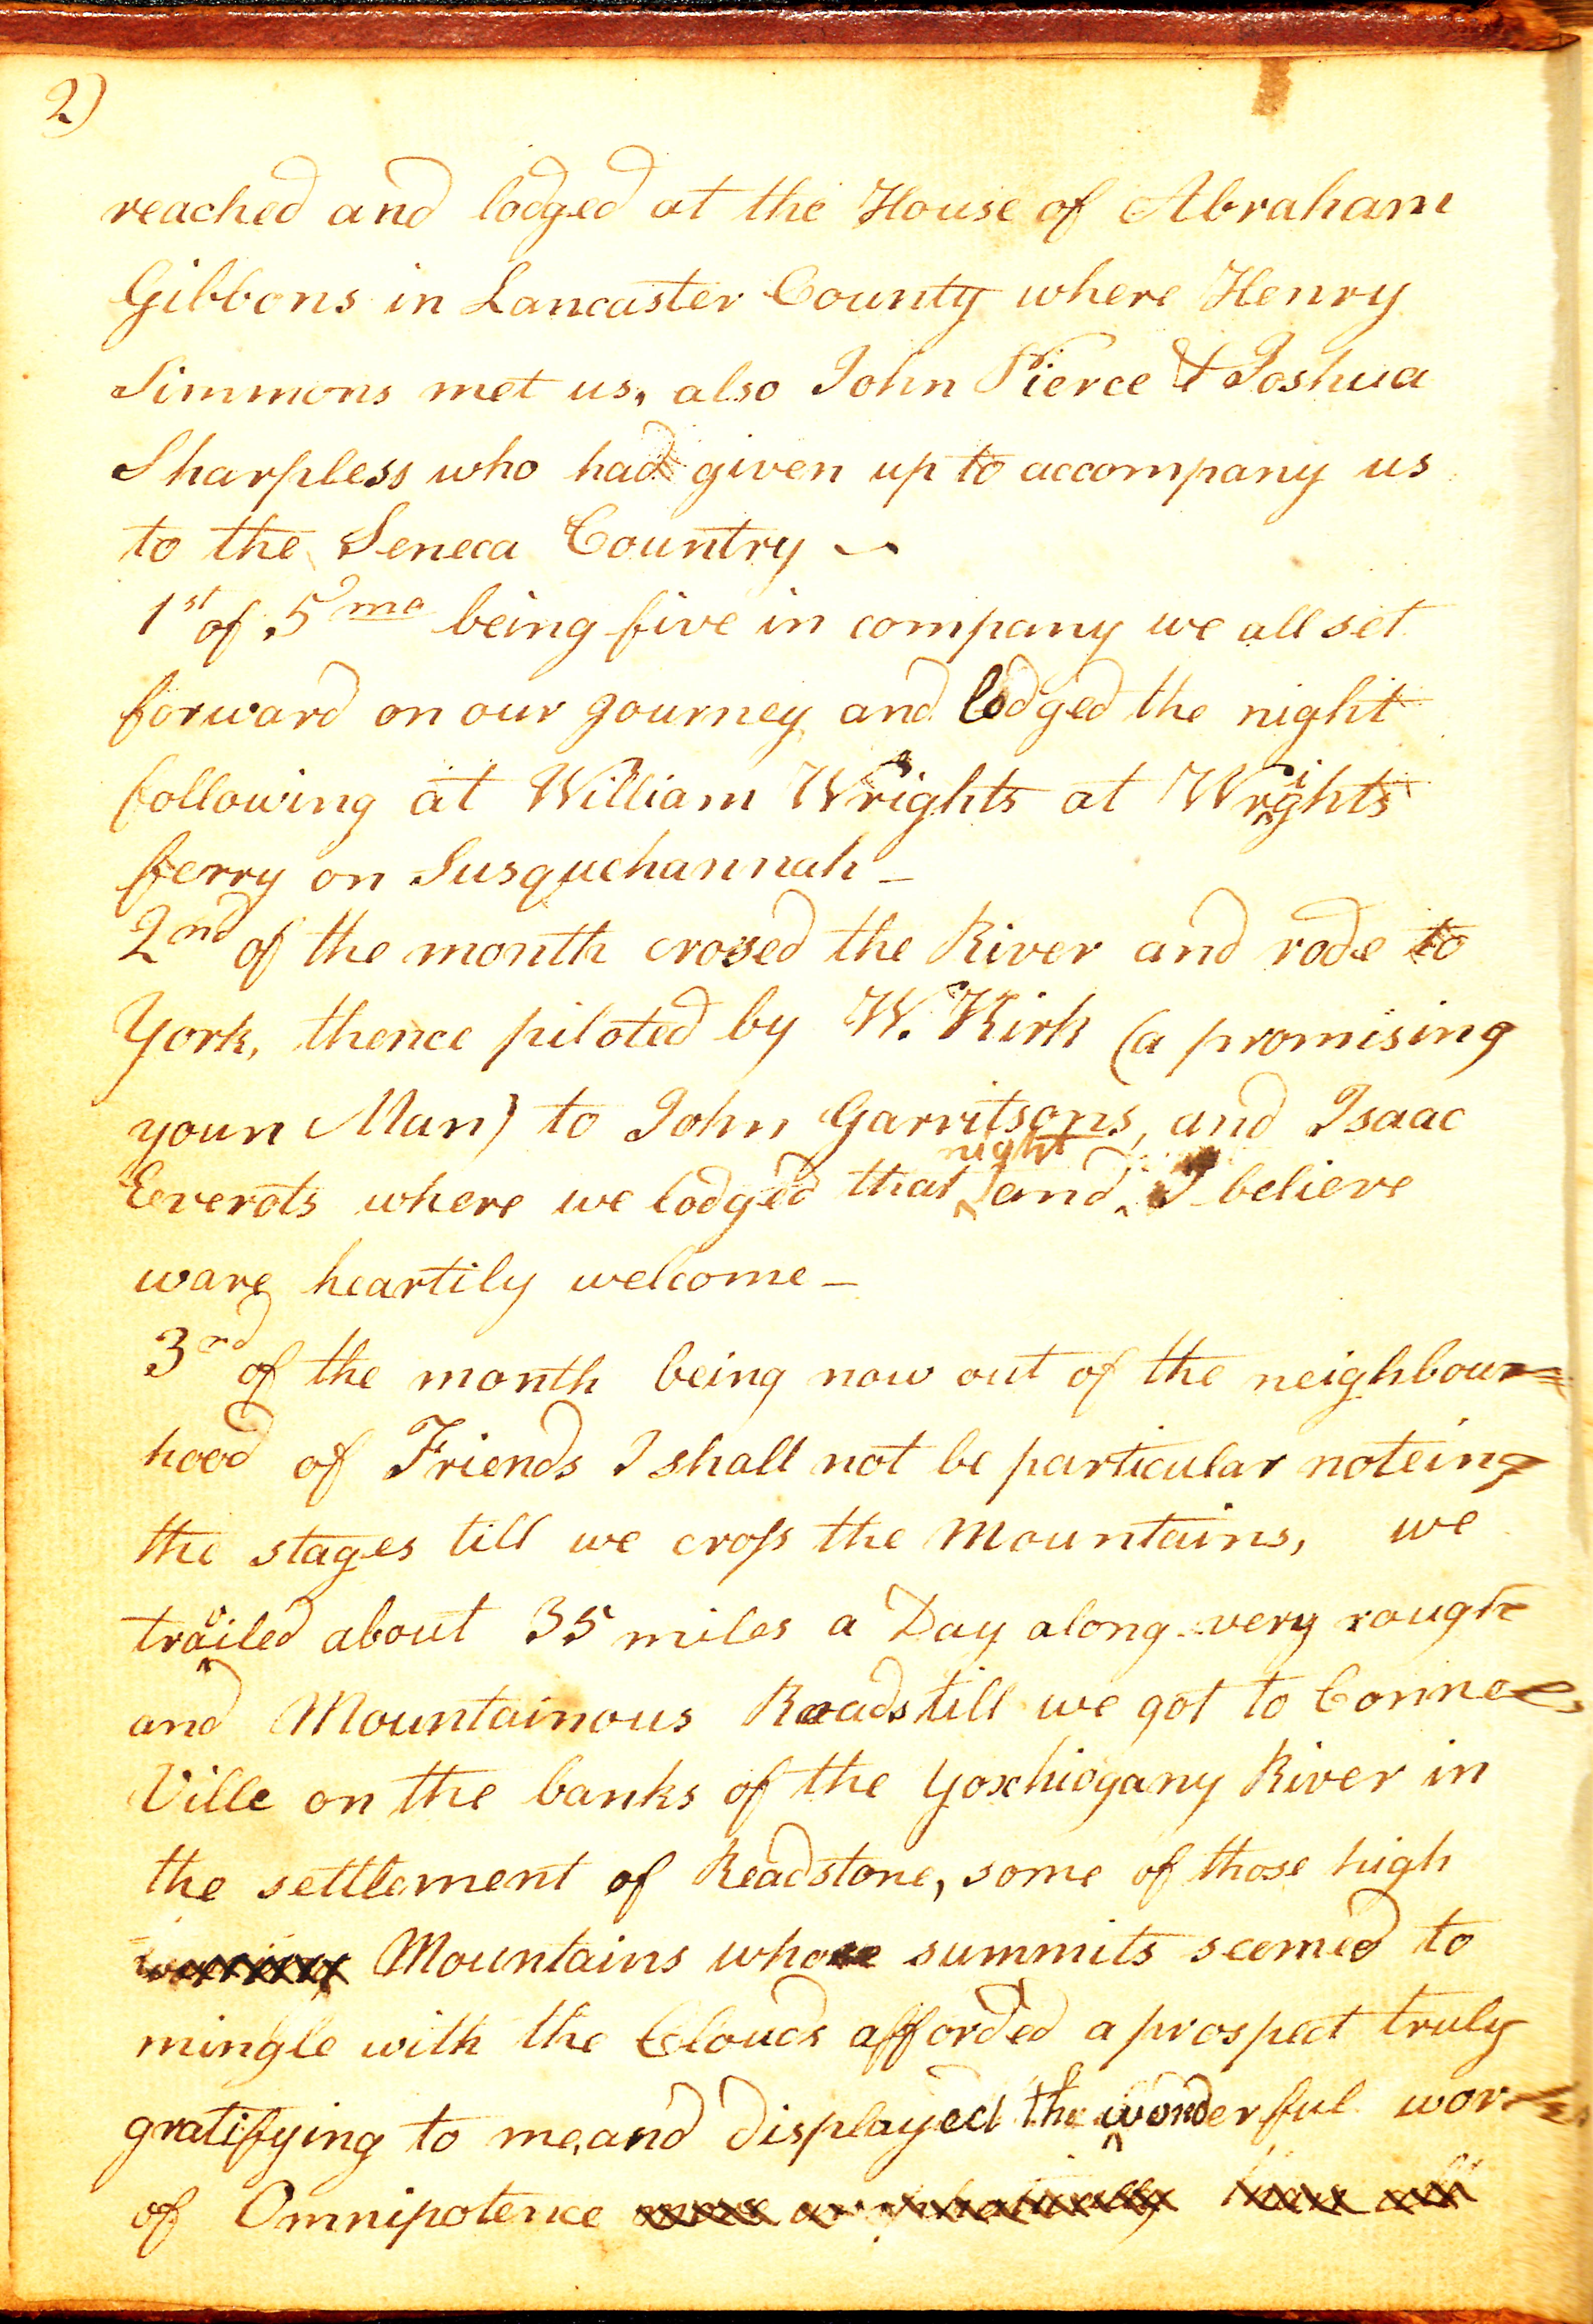 2)
reached and lodged at the House of Abraham
Gibbons in Lancaster County where Henry
Simmons met us, also John Pierce & Joshua
Sharpless who had given up to accompany us
to the Seneca Country
1st of 5mo being five in company we all set
forward on our Journey and lodged the night
following at William Wrights at Wrights
ferry on Susquehannah
2nd of the month crossed the River and rode to
York, thence piloted by W. Kirk (a promising
youn Man) to John Garritsons, and Isaac
Everots where we lodged that night and I believe
ware heartily welcome
3rd of the month being now out of the neighbour
hood of Friends I shall not be particular noteing
the stages till we cross the Mountains, we
traviled about 35 miles a Day along very rough
and Mountainous Roads till we got to Connels
Ville on the banks of the Yoxhiogany River in
the settlement of Readstone, some of those high
Mountains whose summits seemed to
mingle with the Clouds afforded a prospect truly
gratifying to me, and displayed the wonderful works
of Omnipotence